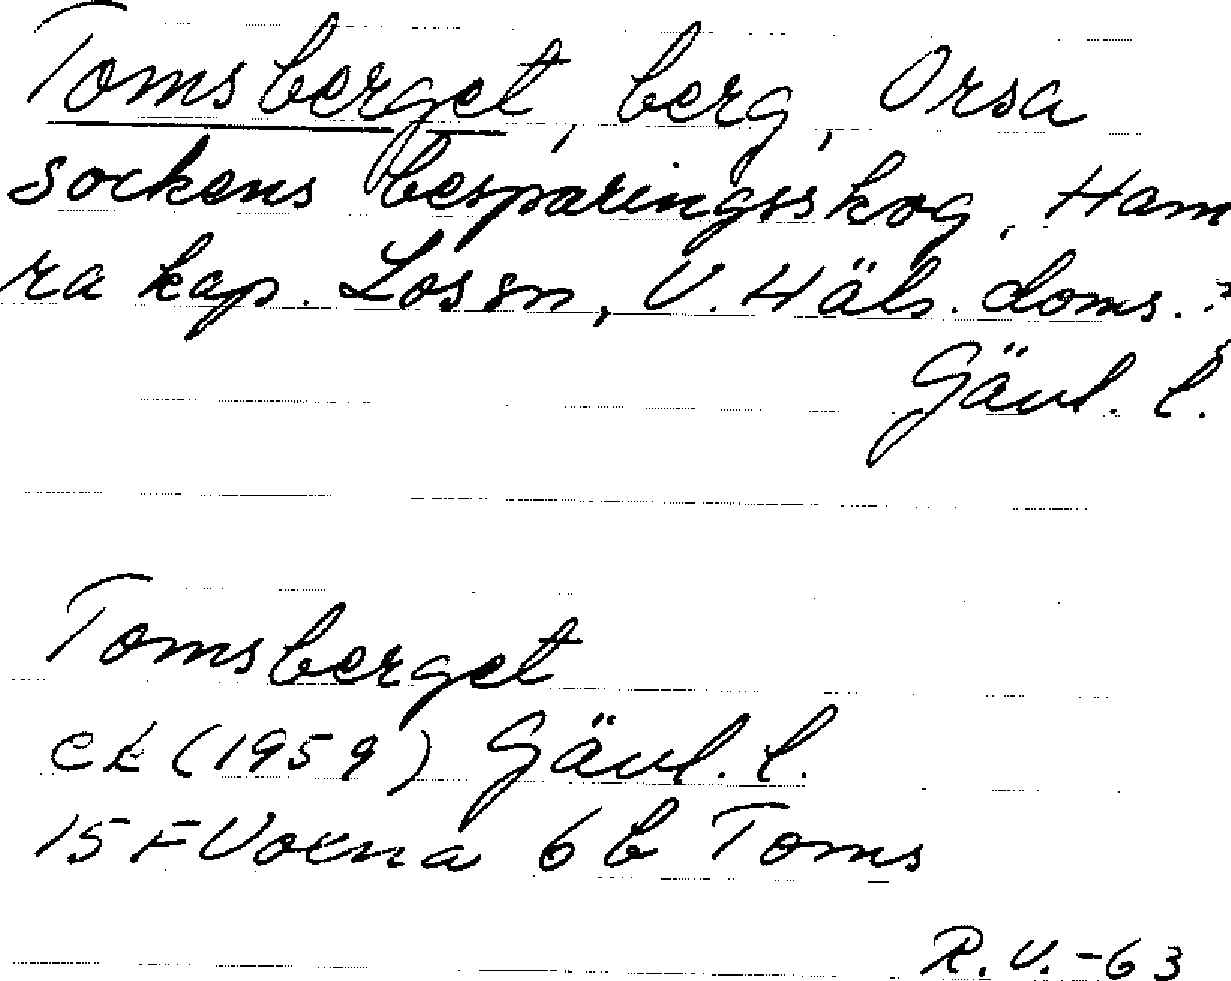 Tomsberget, berg, Orsa
sockens besparingsskog, Ham
ra kap. Los sn, V. Häls. doms.
Gävl. l.
Tomsberget
ek (1959) Gävl. l.
15 F Voxna 6 b Toms
R.V.-63